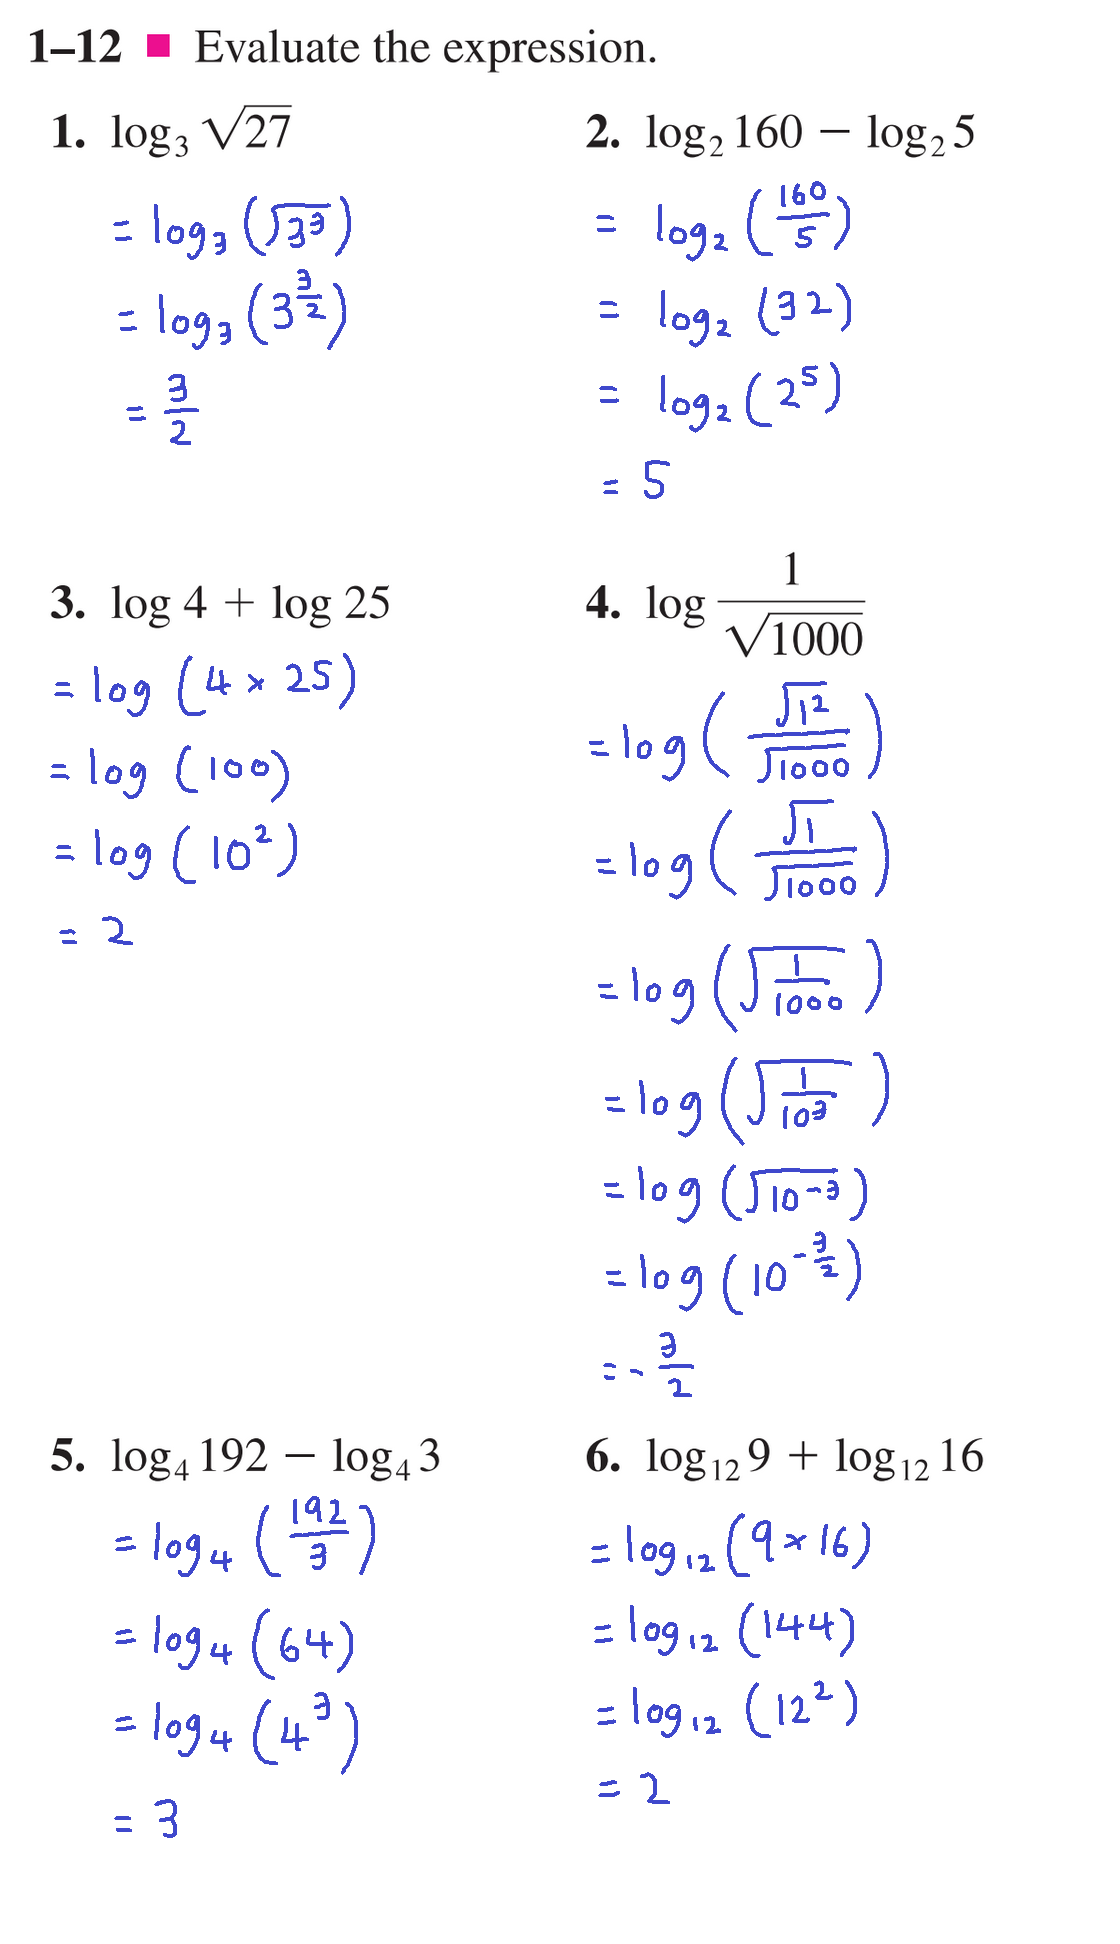 1–12 ■ Evaluate the expression.
1. log₃ √27
= log₃ (√3³)
= log₃ (3^(3/2))
= 3/2
2. log₂ 160 − log₂ 5
= log₂ (160/5)
= log₂ (32)
= log₂ (2⁵)
= 5
3. log 4 + log 25
= log (4 × 25)
= log (100)
= log (10²)
= 2
4. log 1/√1000
= log (√1²/√1000)
= log (√1/√1000)
= log (√(1/1000))
= log (√(1/10³))
= log (√10⁻³)
= log (10^(-3/2))
= - 3/2
5. log₄ 192 − log₄ 3
= log₄ (192/3)
= log₄ (64)
= log₄ (4³)
= 3
6. log₁₂ 9 + log₁₂ 16
= log₁₂ (9 × 16)
= log₁₂ (144)
= log₁₂ (12²)
= 2